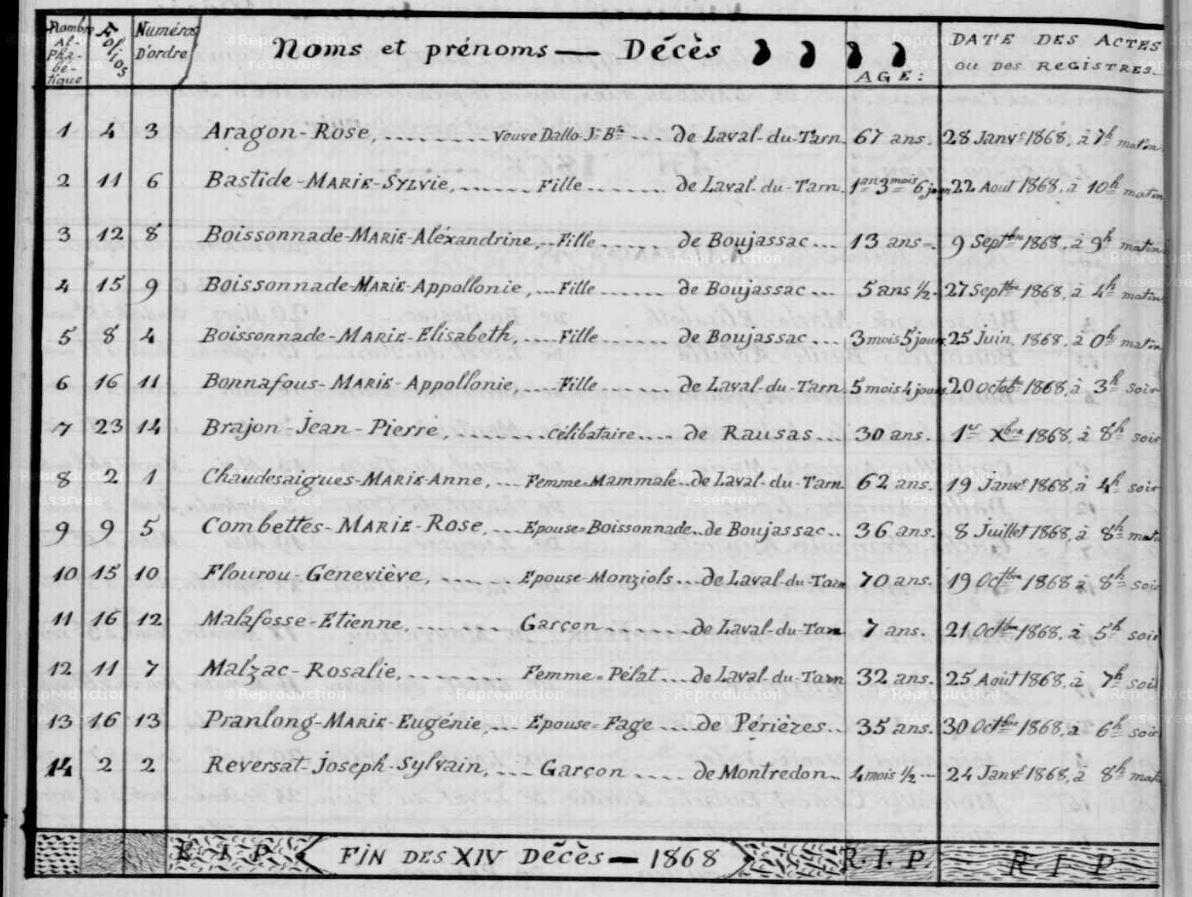 Nombre Alphabétique Folios Numéros D'ordre Noms et prénoms — Décès AGE: DATE DES ACTES ou DES REGISTRES.
1 4 3 Aragon-Rose, Veuve Dallo J. Bte de Laval-du-Tarn. 67 ans. 28 Janvr 1868, à 7h matin
2 11 6 Bastide-MARIE-Sylvie, Fille de Laval-du-Tarn. 1 an 3 mois 6 jours 22 Aout 1868, à 10h matin
3 12 8 Boissonnade-MARIE-Aléxandrine, Fille de Boujassac 13 ans. 9 Septbre 1868, à 9h matin
4 15 9 Boissonnade-MARIE-Appollonie, Fille de Boujassac 5 ans ½. 27 Septbre 1868, à 4h matin
5 8 4 Boissonnade-MARIE-Elisabeth, Fille de Boujassac 3 mois 5 jours 25 Juin 1868, à 0h matin
6 16 11 Bonnafous-MARIE-Appollonie, Fille de Laval-du-Tarn 5 mois 4 jours. 20 octobre 1868, à 3h soir
7 23 14 Brajon-Jean-Pierre, Célibataire de Rausas 30 ans. 1er Xbre 1868, à 8h soir
8 2 1 Chaudesaigues-MARIE-Anne, Femme=Mammale de Laval-du-Tarn 62 ans. 19 Janvr 1868, à 4h soir
9 9 5 Combettes-MARIE-Rose, Epouse=Boissonnade de Boujassac 36 ans. 8 Juillet 1868, à 8h mat
10 15 10 Flourou-Geneviève, Epouse-Monziols de Laval-du-Tarn 70 ans. 19 Octbre 1868, à 8h soir
11 16 12 Malafosse-Etienne, Garçon de Laval-du-Tarn 7 ans. 21 Octbre 1868, à 5h soir
12 11 7 Malzac-Rosalie, Femme=Pélat de Laval-du-Tarn 32 ans. 25 Août 1868, à 7h soir
13 16 13 Pranlong-MARIE-Eugénie, Epouse=Fage de Périères 35 ans. 30 Octbre 1868, à 6h soir
14 2 2 Reversat-Joseph-Sylvain, Garçon de Montredon 4 mois ½ 24 Janvr 1868, à 8h mat
R.I.P. FIN DES XIV Décès — 1868 R.I.P. R I P